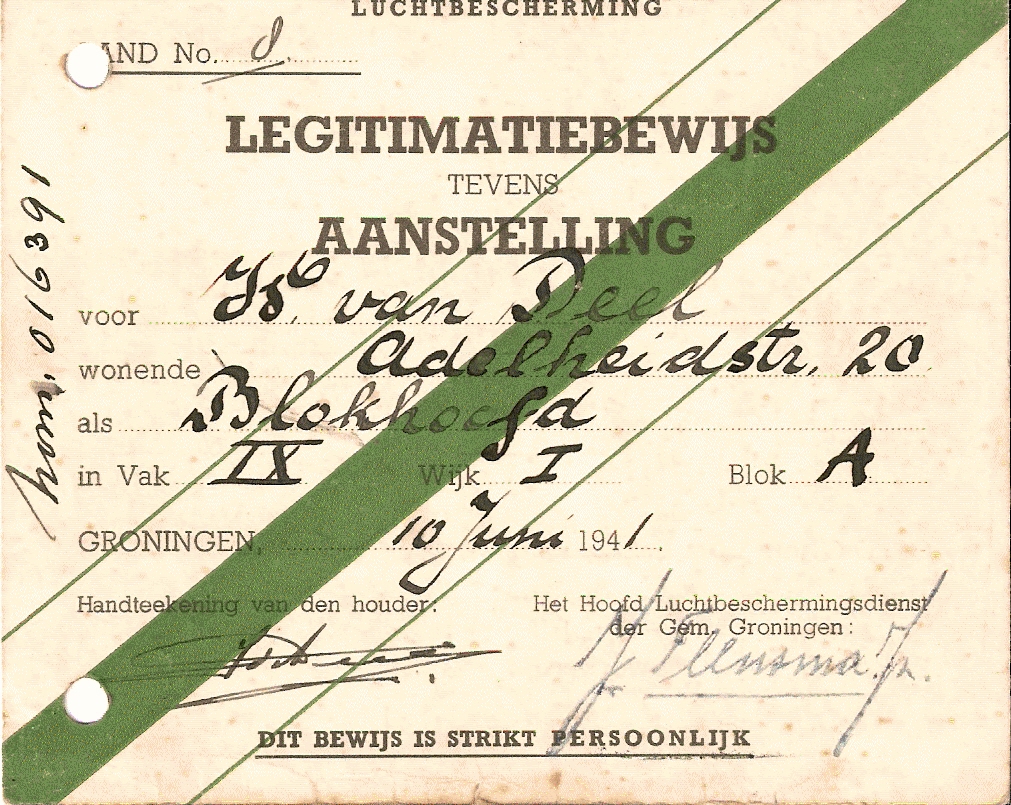 LUCHTBESCHERMING
AND No. 8.
LEGITIMATIEBEWIJS
TEVENS
AANSTELLING
voor Js. van Deel
wonende Adelheidstr. 20
als Blokhoofd
in Vak IX Wijk I Blok A
GRONINGEN, 10 Juni 1941.
Handteekening van den houder:
Het Hoofd Luchtbeschermingsdienst
der Gem. Groningen:
DIT BEWIJS IS STRIKT PERSOONLIJK
num. 016391